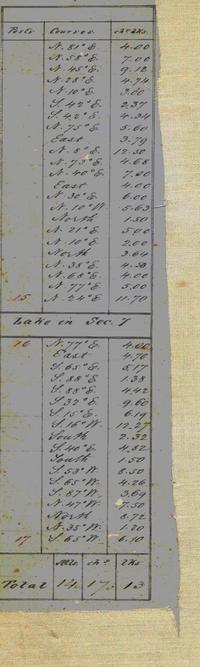 Posts Courses Ch. Lks.
N. 81° E. 4.00
N. 58° E. 7.00
N. 45° E. 9.12
N. 28° E. 4.74
N. 10° E. 3.00
S. 42° E. 2.37
S. 62° E. 4.34
N. 75° E. 5.60
East 3.79
N. 8° E. 12.50
N. 73° E. 4.68
N. 40° E. 7.00
East 4.00
N. 30° E. 6.00
N. 10° W. 5.63
North 1.50
N. 21° E. 5.00
N. 10° E. 2.00
North 3.64
N. 35° E. 4.58
N. 68° E. 4.00
N. 77° E. 5.00
15 N. 24° E. 11.70
Lake in Sec. 7
16 N. 77° E. 4.00
East 4.70
S. 65° E. 5.17
S. 88° E. 1.38
S. 88° E. 4.42
S. 32° E. 9.60
S. 15° E. 6.19
S. 16° W. 12.27
South 2.32
S. 40° E. 4.52
South 1.50
S. 53° W. 8.50
S. 65° W. 4.26
S. 87° W. 3.69
N. 47° W. 7.50
North 8.72
N. 35° W. 1.20
17 S. 65° W. 6.10
Mls. chs. lks
Total 14. 17. 13